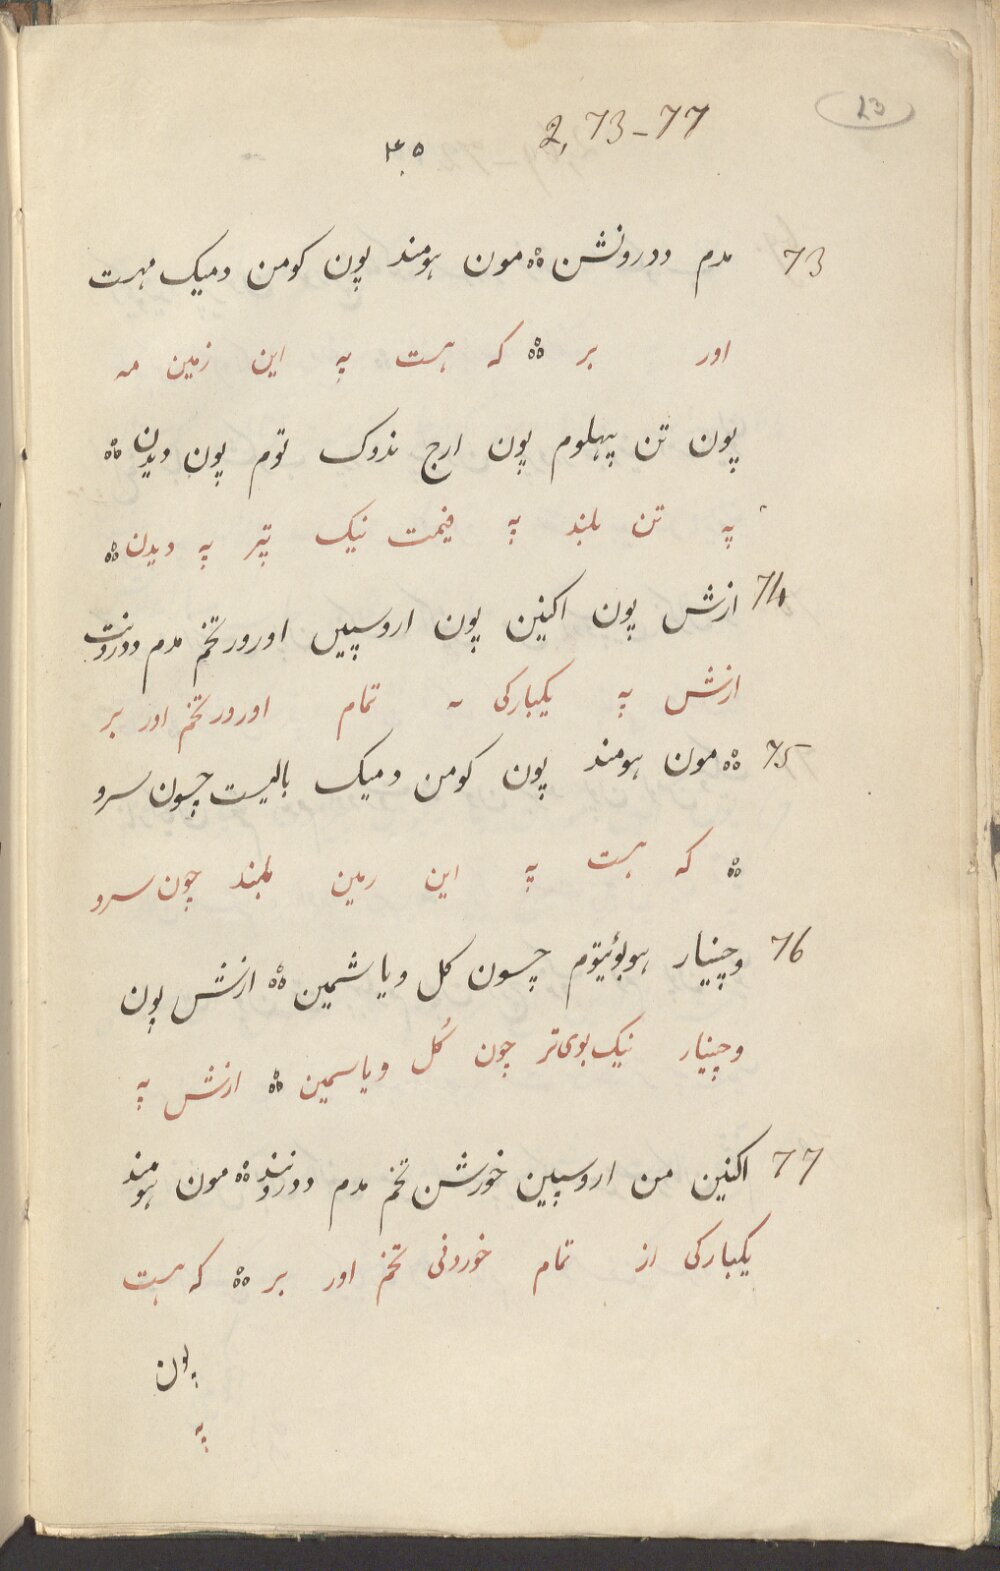 23
2, 73-77
۴۵
73 مدم ددرونشن ؞ مون هومند پون کومن دمیک مهست
اور بر ؞ که هست په این زمین مه
پون تن پهلوم پون ارج نذوک توم پون دیدن ؞
په تن بلند په قیمت نیک تیر په دیدن ؞
74 ازش پون اکنین پون اروسپین اورور تخم مدم ددروننت
ازش په یکبارکی په تمام اورور تخم اور بر
75 ؞ مون هومند پون کومن دمیک بالیست چسون سرو
؞ که هست په این زمین بلند چون سرو
76 وچنیار هوبوئیتوم چسون کل ویاشمین ؞ ازش پون
وچنیار نیک بوی‌تر چون کُل ویاسمین ؞ ازش په
77 اکنین من اروسپین خورشن تخم مدم ددروننند ؞ مون هومند
یکبارکی از تمام خوردنی تخم اور بر ؞ که هست
پون
په